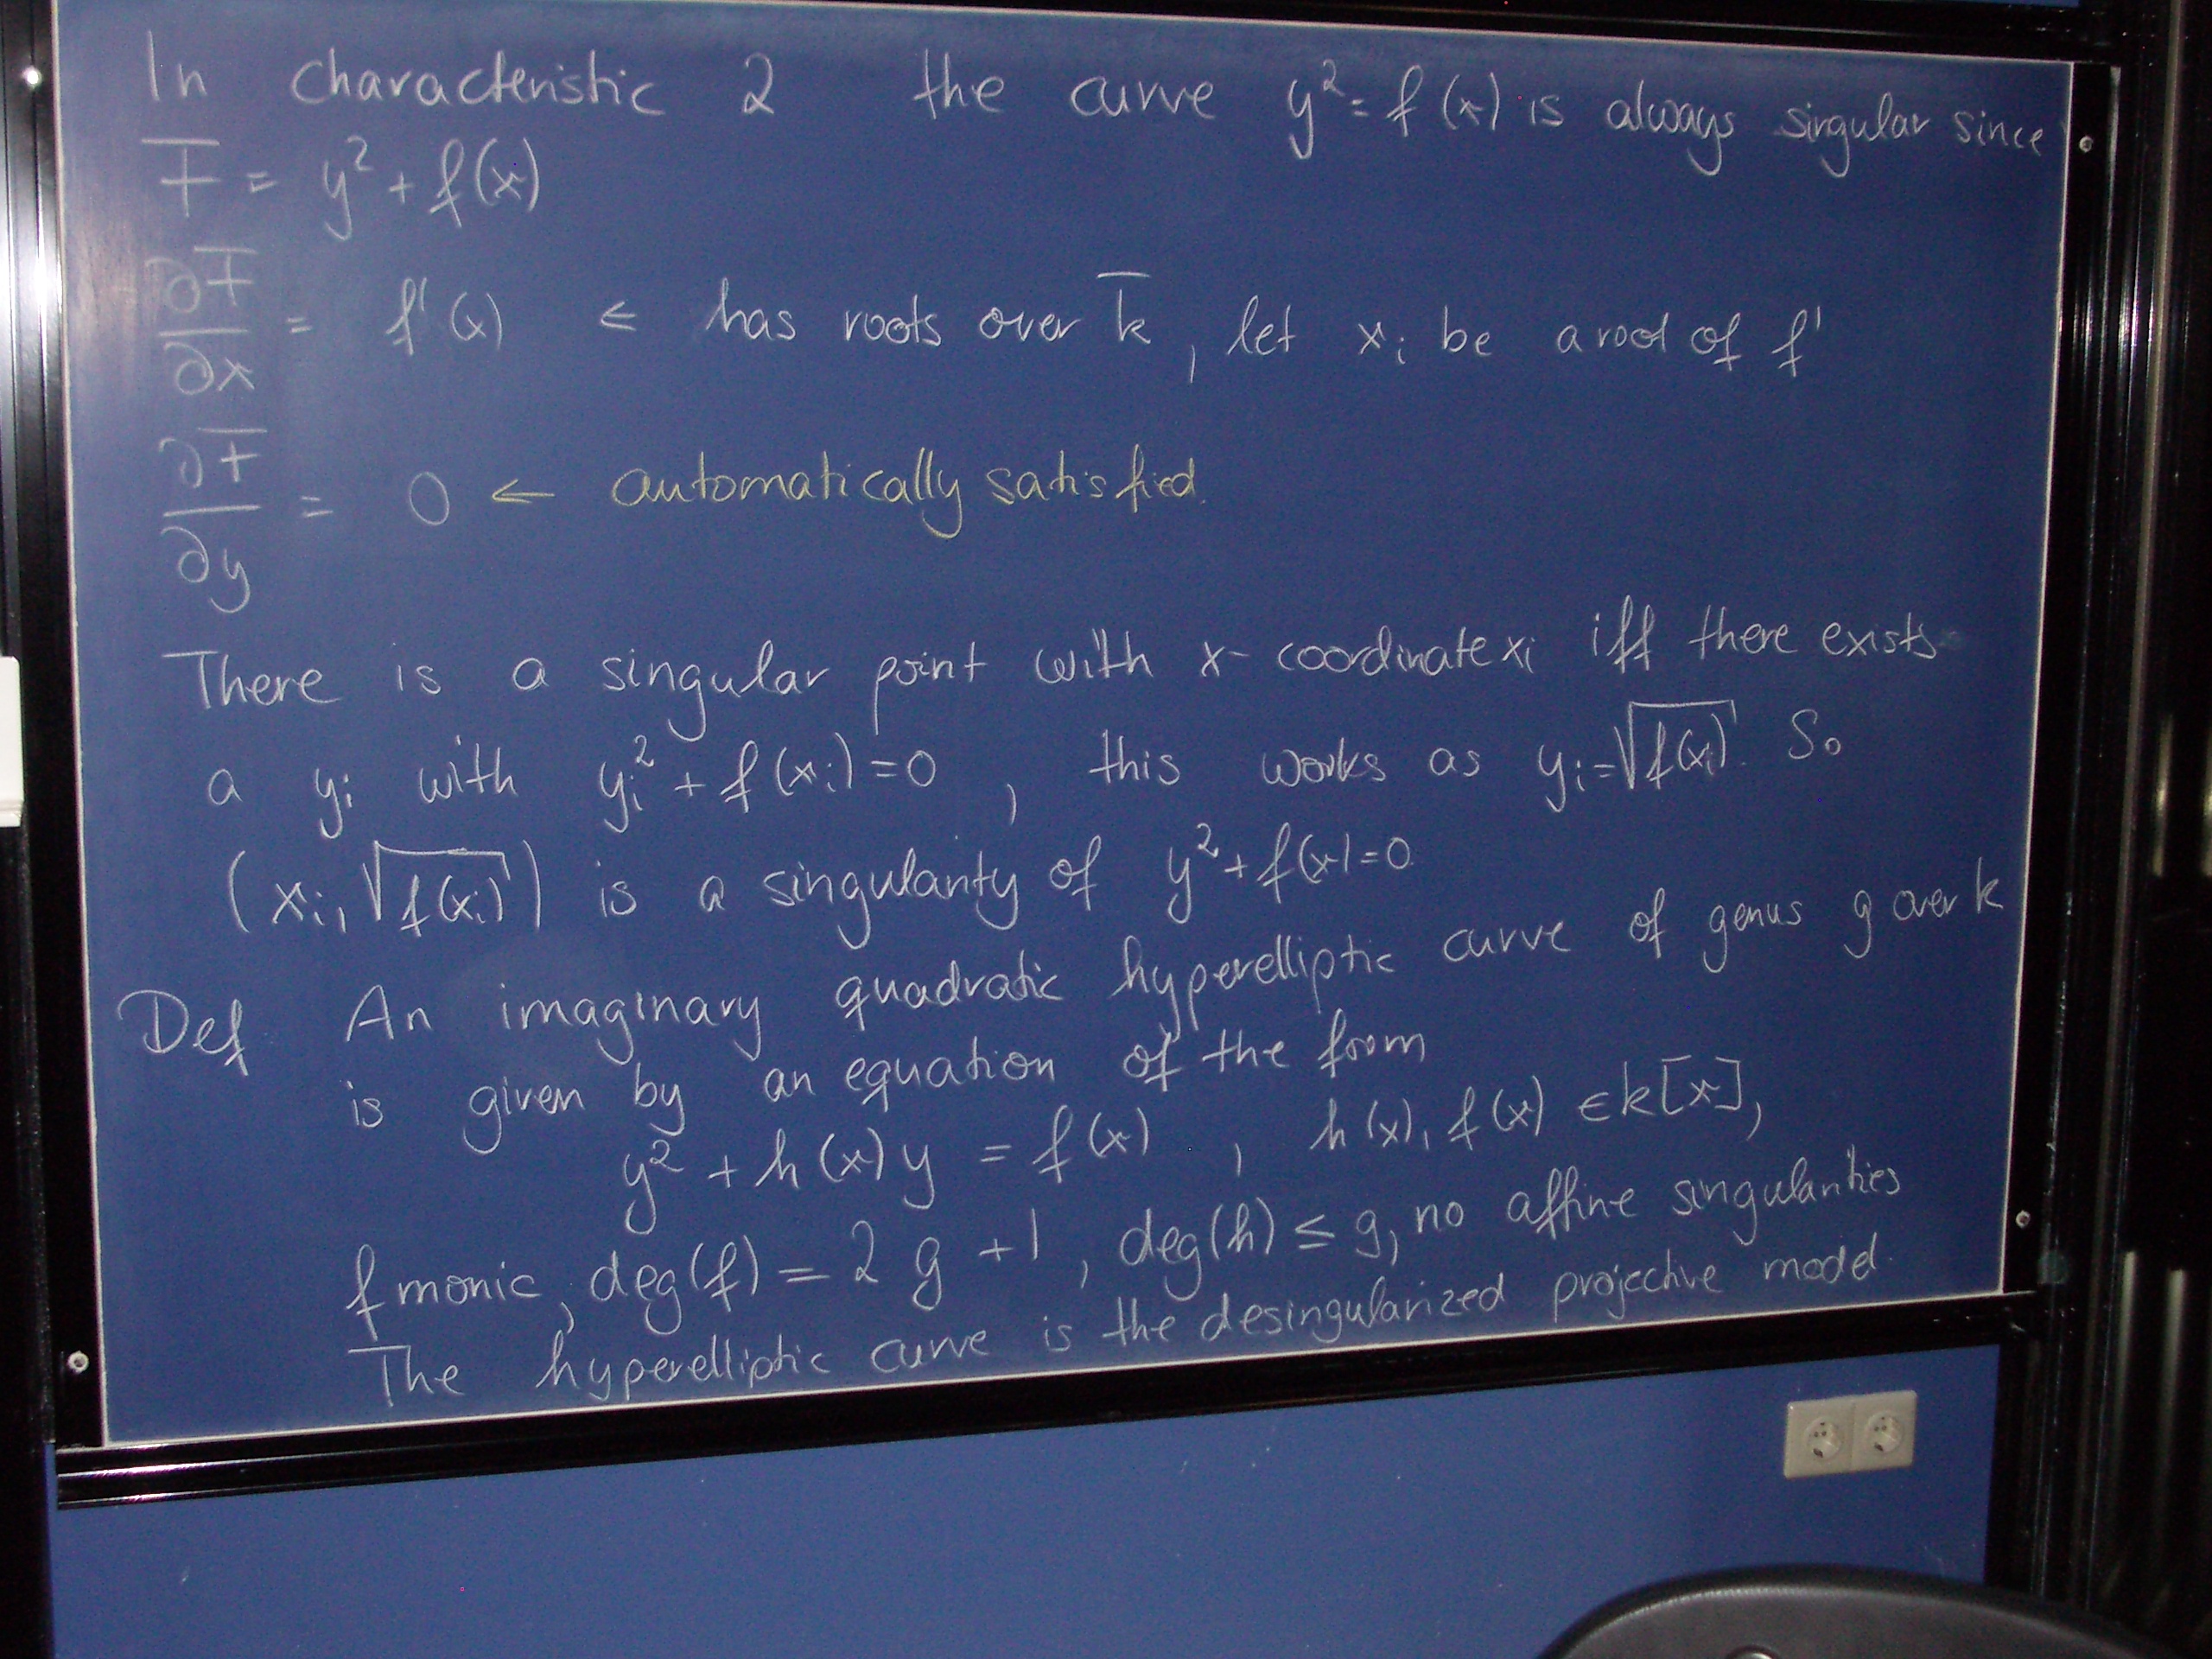 In characteristic 2 the curve y² = f(x) is always singular since
F = y² + f(x)
∂F/∂x = f'(x) ← has roots over k̅, let xᵢ be a root of f'
∂F/∂y = 0 ← automatically satisfied.
There is a singular point with x-coordinate xᵢ iff there exists
a yᵢ with yᵢ² + f(xᵢ) = 0, this works as yᵢ = √f(xᵢ). So
(xᵢ, √f(xᵢ)) is a singularity of y² + f(x) = 0.
Def An imaginary quadratic hyperelliptic curve of genus g over k
is given by an equation of the form
y² + h(x)y = f(x), h(x), f(x) ∈ k[x],
f monic, deg(f) = 2g+1, deg(h) ≤ g, no affine singularities
The hyperelliptic curve is the desingularized projective model.